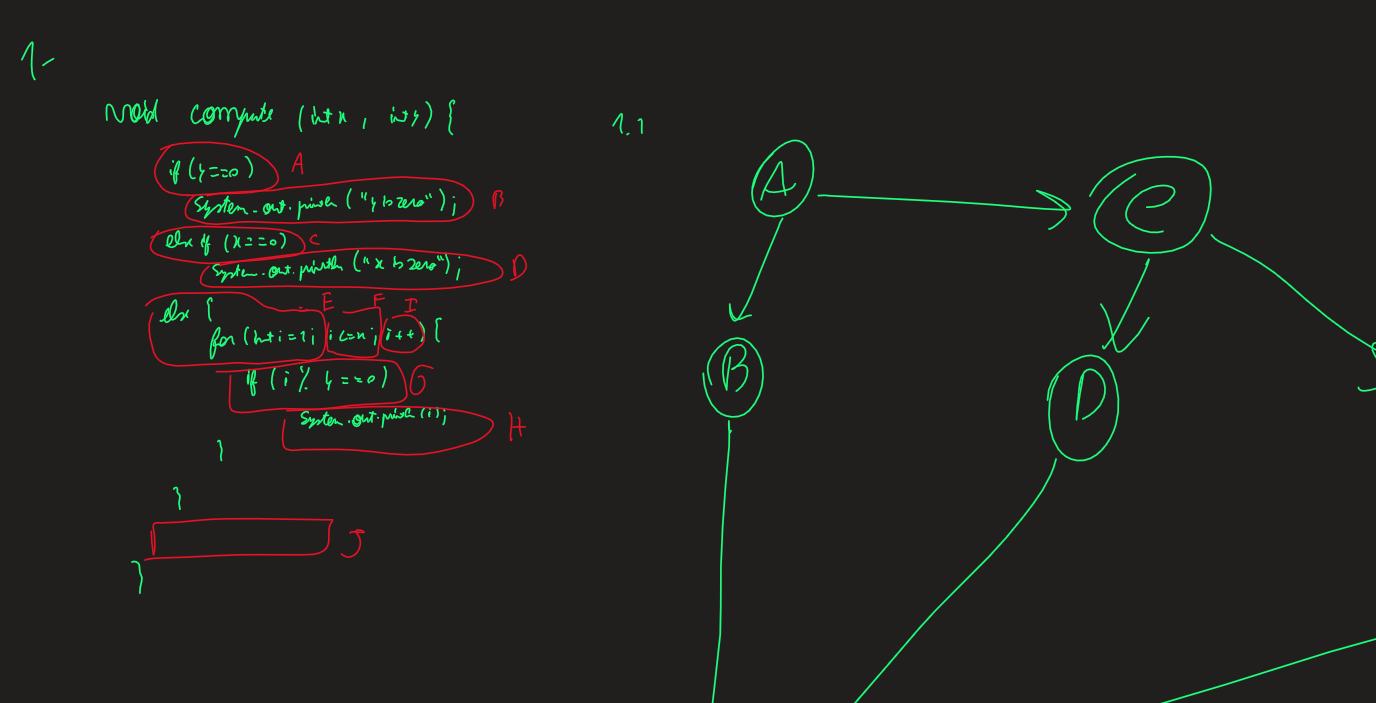 1-
void compute (int x, int y) {
if (y==0) A
System.out.println ("y is zero"); B
else if (x==0) C
System.out.println ("x is zero"); D
else { E F I
for (int i=1; i<=x; i++) {
if (i % y ==0) G
System.out.println (i); H
}
}
J
}
1.1
A C
B D